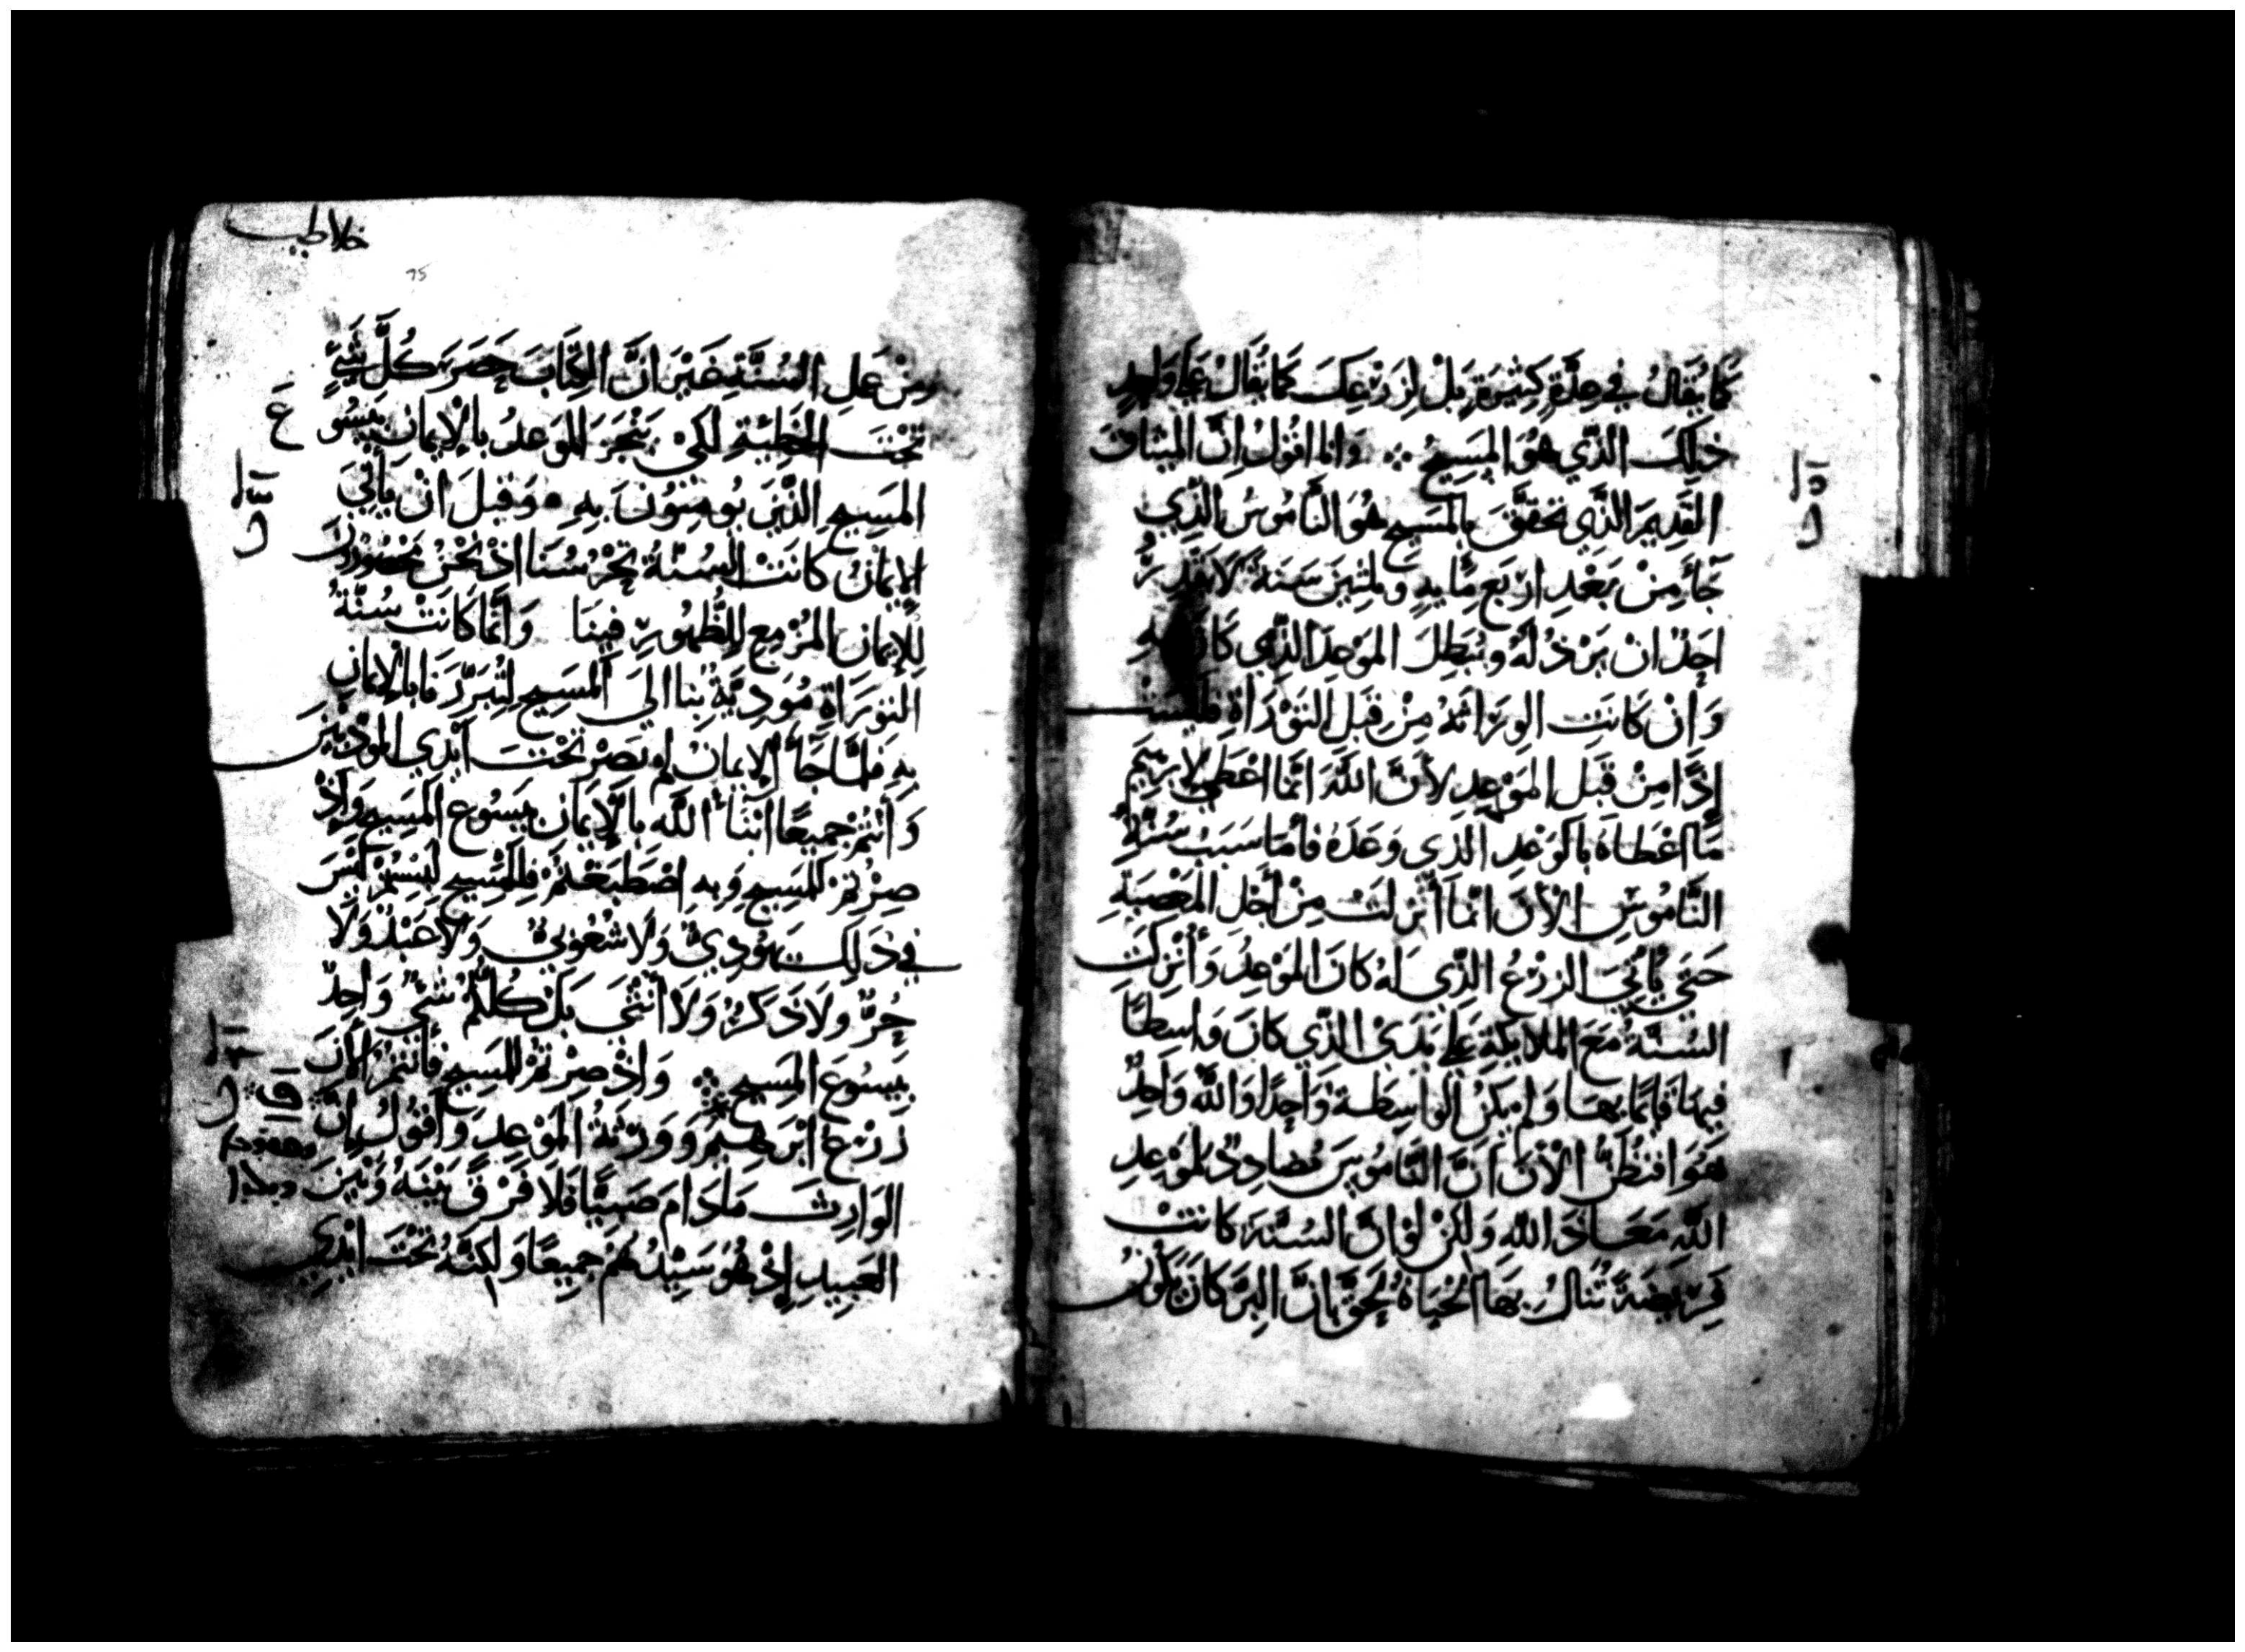 كَمَا يُقَالُ فِي عِدَّةٍ كَثِيرَةٍ بَلْ لِزَرْعِكَ كَمَا يُقَالُ عَلَى وَاحِدٍ
ذَلِكَ الذَّي هُوَ المَسِيحُ ⁘ وَانا اقُولُ اِنَّ المِيثاقَ
القَدِيمَ الذَّي تحَقَّقَ بِالمَسِيحِ هُوَ النَّامُوسُ الذِي
جَآءَ مِنْ بَعْدِ ارْبَع مِايةٍ وثلثِينَ سَنَةً لَا يَقْدِرُ
احَدٌ انْ يَرْذُلَهُ وَيُبَطِلَ المَوْعِدَ الذِّي كَانَ بهِ
وَاِنْ كَانَتِ الوِرَاثَةُ مِنْ قِبَلِ التَوْرَاةِ فَلَيْسَتْ
اِذًا مِنْ قِبَلِ المَوْعِدِ لِأَنَّ اللَّهَ انَّمَا اعْطَى لِابْرَهِيمَ
مَا اعْطَاهُ بِالوَعْدِ الذِي وَعَدَهُ فأمَا سَبَبُ سُنَّةِ
النَّامُوسِ الأَنَ انَّمَا أُنْزِلَتْ مِنْ أَجْلِ المَعْصِيَةِ
حَتَى يَأتِيَ الزرْعُ الذِّي لَهُ كَانَ المَوْعِدُ وَأُنْزِلَتِ
السُنَّةُ مَعَ المَلَايِكَةِ عَلَى يَدَيْ الذَّي كَانَ وَاسِطًا
فِيهَا فَانَّمَا بهَا وَلمْ يَكُنْ الوَاسِطَة وَاحِدًا وَاللَّهُ وَاحِدٌ
هُوَ افتَظُنُّ الأَنَ انَّ النَّامُوسَ مُضادِدٌ لمَوْعِدِ
اللَّهِ مَعَاذَ اللَّهِ وَلكِنْ لوْ انَّ السُنَّةَ كَانتْ
فَرِيضَةً تُنالُ بهَا الحَيَاةُ لحَقٌّ بانَّ البِرَّ كَانَ يَكُونُ
غلاطيه
75
مِنْ عَمَلِ السُنَّةِ غَيْرَ انَّ الكِتَابَ حَصَرَ كُلَّ شَيٍّ
تَحْتَ الخَطِيَّةِ لكَيْ يَنْجَزَ المَوعِدُ بالإِيمانِ بيَسُوع
المَسِيحِ الذَّينَ يُومِنُوُنَ بهِ • وَقَبلَ انْ يَاتِيَ
الإِيمَانُ كَانَتْ السُنَّةُ تَحْرُسُنَا اذْ نَحْنُ مَحْصُورُونَ
لِلإِيمَانِ المُزْمِعِ لِلظُهُورِ فِينَا وَانَّمَا كَانَتْ سُنَّةُ
التوْرَاةِ مُوَدِيَّةً بنَا اليَ المَسِيحِ لِنُبَرَّرَ بالإِيمَانِ
بِهِ فلمَّا جَآءَ الإِيمَانُ لمْ نصِرْ تَحْتَ اَيْدِي المُوَدِّبِينَ
وَأَنتُمْ جَمِيعًا ابْنَآءُ اللَّهِ بِالإِيمَانِ بيَسُوعَ المَسِيحِ وَاِذْ
صِرْتمْ لِلمَسِيحِ وَبِهِ اصْطَبَغتمْ فالمَسِيحَ لَبِسْتُمْ لَيْسَ
في ذَلِكَ يَهُودِيٌّ وَلَا شُعُوبيٌّ وَلَا عَبْدٌ وَلَا
حُرٌّ وَلَا ذَكَرٌ وَلَا انْثَي بَلْ كُلكُمْ شيٌّ وَاحِدٌ
بيَسُوعَ المَسِيحِ ⁘ وَاِذْ صِرْتمْ لِلمَسِيحِ فَأَنتمْ الأَنَ
زَرْعُ ابْرَهِيمَ وَوَرَثةُ المَوْعِدِ وَأَقُولُ اِنَّ
الوَارِثَ مَا دَامَ صَبِيًّا فَلَا فَرْقَ بَيْنَهُ وَبَيْنَ
العَبِيدِ اِذْ هُوَ سَيِّدُهُمْ جَمِيعًا وَلكِنَّهُ تَحْتَ ايْدِي